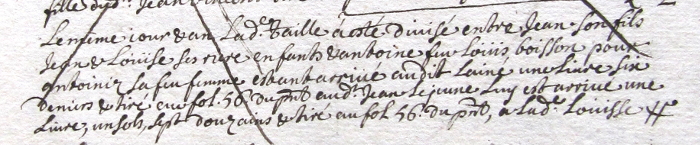 fille du sr Jean Vincent
Le mesme jour & an Lade. Taille a esté divisé entre Jean son fils
Jean & Louise ses enfants & antoine feu Louis boisson pour
sa feu femme estant arrivé audit Laine une Livre six
deniers & tiré au fol. 56. du pnt aud. Jean Lejeune Luy est arrivé une
Livre, un sols, sept douzains & tiré au fol 56. du pnt, a Lade. Louisse